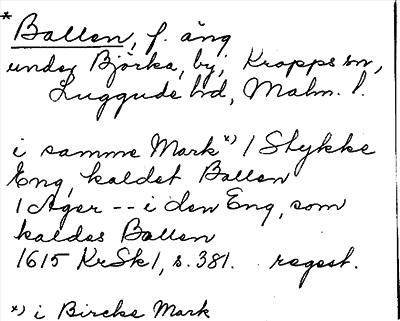 * Ballen, f. äng
under Björka, by, Kropps sn,
Luggude hd, Malm. l.
i samme Mark*) 1 Stykke
Eng, kaldet Ballen
1 Ager -- i den Eng, som
kaldes Ballen
1615 KrSk1, s. 381. regest.
*) i Bircke Mark